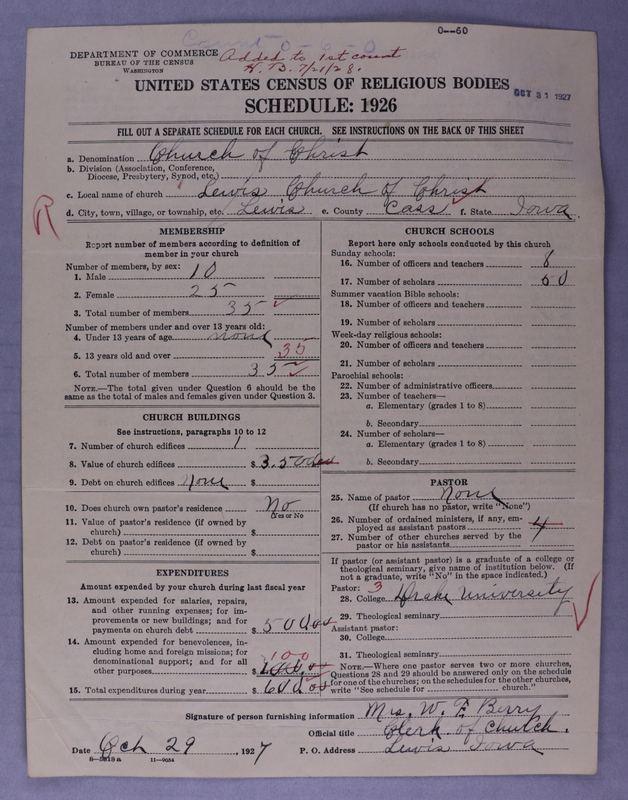 0—60
DEPARTMENT OF COMMERCE
BUREAU OF THE CENSUS
WASHINGTON
Added to 1st count
H. B. 7/21/28.
UNITED STATES CENSUS OF RELIGIOUS BODIES
OCT 31 1927
SCHEDULE: 1926
FILL OUT A SEPARATE SCHEDULE FOR EACH CHURCH. SEE INSTRUCTIONS ON THE BACK OF THIS SHEET
a. Denomination Church of Christ
b. Division (Association, Conference, Diocese, Presbytery, Synod, etc.)
c. Local name of church Lewis Church of Christ
d. City, town, village, or township, etc. Lewis e. County Cass f. State Iowa
R
MEMBERSHIP
Report number of members according to definition of member in your church
Number of members, by sex:
1. Male 10
2. Female 25
3. Total number of members 35
Number of members under and over 13 years old:
4. Under 13 years of age none
5. 13 years old and over 35
6. Total number of members 35
NOTE.—The total given under Question 6 should be the same as the total of males and females given under Question 3.
CHURCH BUILDINGS
See instructions, paragraphs 10 to 12
7. Number of church edifices 1
8. Value of church edifices $ 3,500
9. Debt on church edifices None $
10. Does church own pastor's residence No
(Yes or No)
11. Value of pastor's residence (if owned by church) $
12. Debt on pastor's residence (if owned by church) $
EXPENDITURES
Amount expended by your church during last fiscal year
13. Amount expended for salaries, repairs, and other running expenses; for improvements or new buildings; and for payments on church debt $ 500 00
14. Amount expended for benevolences, including home and foreign missions; for denominational support; and for all other purposes $ 100
15. Total expenditures during year $ 600 00
CHURCH SCHOOLS
Report here only schools conducted by this church
Sunday schools:
16. Number of officers and teachers 8
17. Number of scholars 50
Summer vacation Bible schools:
18. Number of officers and teachers
19. Number of scholars
Week-day religious schools:
20. Number of officers and teachers
21. Number of scholars
Parochial schools:
22. Number of administrative officers
23. Number of teachers—
a. Elementary (grades 1 to 8)
b. Secondary
24. Number of scholars—
a. Elementary (grades 1 to 8)
b. Secondary
PASTOR
25. Name of pastor None
(If church has no pastor, write "None")
26. Number of ordained ministers, if any, employed as assistant pastors 4
27. Number of other churches served by the pastor or his assistants
If pastor (or assistant pastor) is a graduate of a college or theological seminary, give name of institution below. (If not a graduate, write "No" in the space indicated.)
Pastor: 3
28. College Drake University
29. Theological seminary
Assistant pastor:
30. College
31. Theological seminary
NOTE.—Where one pastor serves two or more churches, Questions 28 and 29 should be answered only on the schedule for one of the churches; on the schedules for the other churches, write "See schedule for church."
Signature of person furnishing information Mrs. W. F. Berry
Official title Clerk of Church.
Date Oct 29, 1927 P. O. Address Lewis Iowa
11—9034